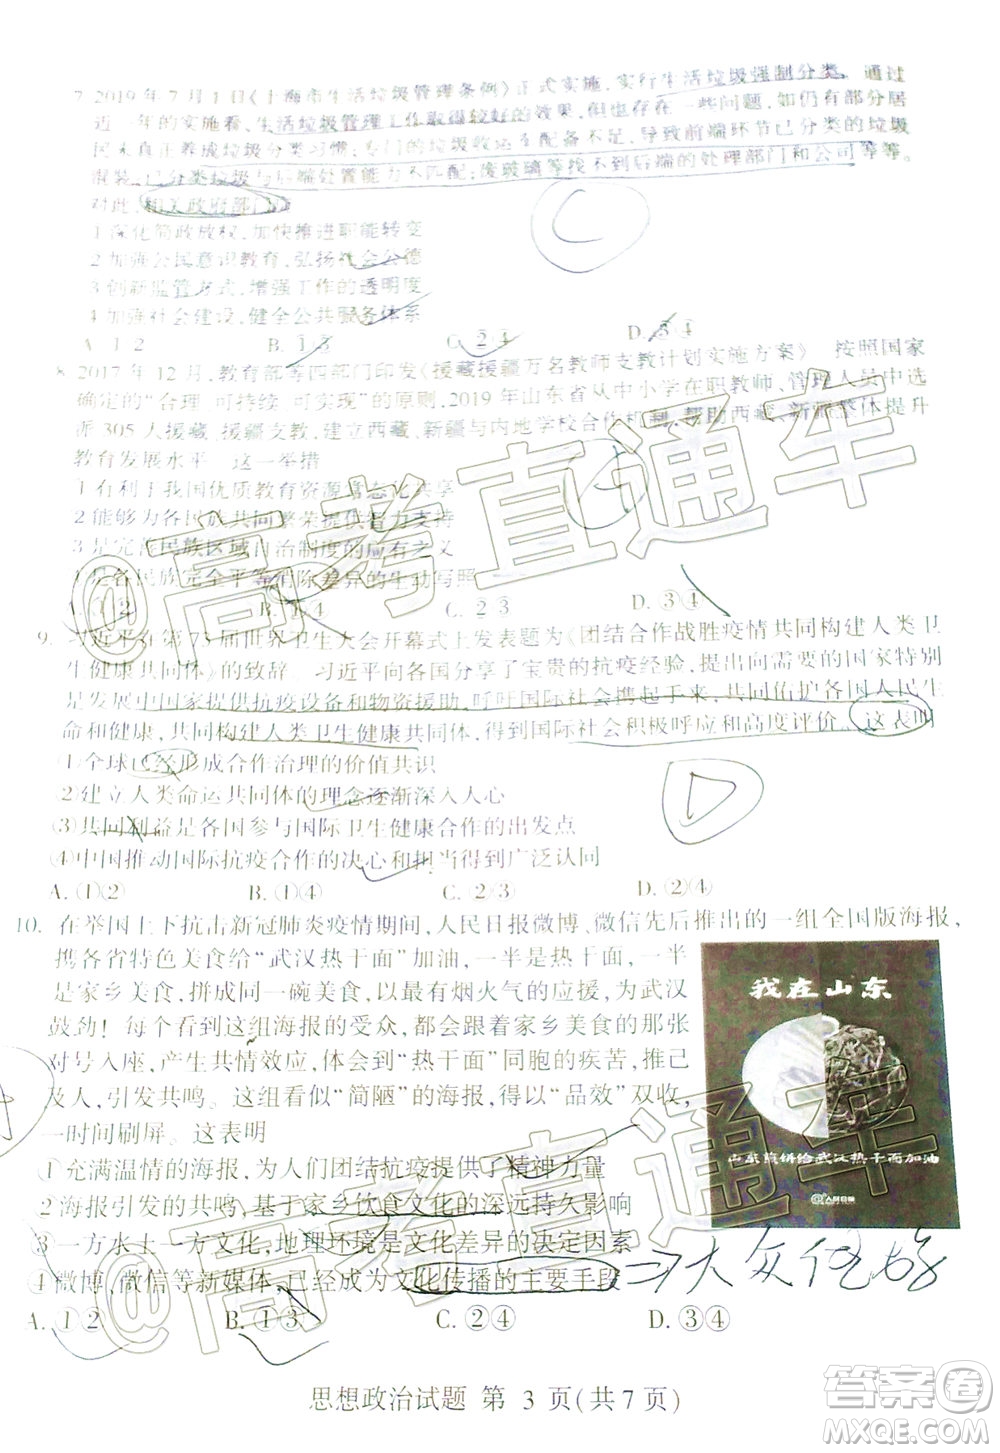 7. 2019 年 7 月 1 日《上海市生活垃圾管理条例》正式实施，实行生活垃圾强制分类。通过
近一年的实施看，生活垃圾管理工作取得较好的效果，但也存在一些问题，如仍有部分居
民未真正养成垃圾分类习惯；专门的垃圾收运设备配置不足，导致前端环节已分类的垃圾
混装；已分类垃圾与后端处置能力不匹配；废玻璃等找不到后端的处理部门和公司等等。
对此，相关政府部门应
①深化简政放权，加快推进职能转变
②加强公民意识教育，弘扬社会公德
③创新监管方式，增强工作的透明度
④加强社会建设，健全公共服务体系
A. ①② B. ①③ C. ②④ D. ③④
8. 2017 年 12 月，教育部等四部门印发《援藏援疆万名教师支教计划实施方案》。按照国家
确定的“合理 可持续 可实现”的原则，2019 年山东省从中小学在职教师、管理人员中选
派 305 人援藏、援疆支教，建立西藏、新疆与内地学校合作机制，帮助西藏、新疆整体提升
教育发展水平。这一举措
①有利于我国优质教育资源常态化共享
②能够为各民族共同繁荣提供智力支持
③是完善民族区域自治制度的应有之义
④是各民族完全平等消除差异的生动写照
A. ①② B. ①④ C. ②③ D. ③④
9. 习近平在第 73 届世界卫生大会开幕式上发表题为《团结合作战胜疫情共同构建人类卫
生健康共同体》的致辞。习近平向各国分享了宝贵的抗疫经验，提出了务实的国家特别
为发展中国家提供抗疫设备和物资援助，呼吁国际社会携起手来，共同佑护各国人民生
命和健康，共同构建人类卫生健康共同体，得到国际社会积极呼应和高度评价。这表明
①全球已经形成合作治理的价值共识
②建立人类命运共同体的理念逐渐深入人心
③共同利益是各国参与国际卫生健康合作的出发点
④中国推动国际抗疫合作的决心和担当得到广泛认同
A. ①② B. ①④ C. ②③ D. ②④
10. 在举国上下抗击新冠肺炎疫情期间，人民日报微博、微信先后推出的一组全国版海报，
携各省特色美食给“武汉热干面”加油，一半是热干面，一半
是家乡美食，拼成同一碗美食，以最有烟火气的应援，为武汉
鼓劲！每个看到这组海报的受众，都会跟着家乡美食的那张
对号入座，产生共情效应，体会到“热干面”同胞的疾苦，进而
及人，引起共鸣。这组看似“简陋”的海报，得以“品效”双收，
一时间刷屏。这表明
①充满温情的海报，为人们团结抗疫提供了精神力量
②海报引发的共鸣，基于家乡饮食文化的深远持久影响
③一方水土一方文化，地理环境是文化差异的决定因素
④微博、微信等新媒体，已经成为文化传播的主要手段
A. ①② B. ①③ C. ②④ D. ③④
我在山东
山东煎饼给武汉热干面加油
@人民日报
C
D
⇒大众传媒
@高考直通车
@高考直通车
思想政治试题 第 3 页（共 7 页）
答案圈
MXQE.COM